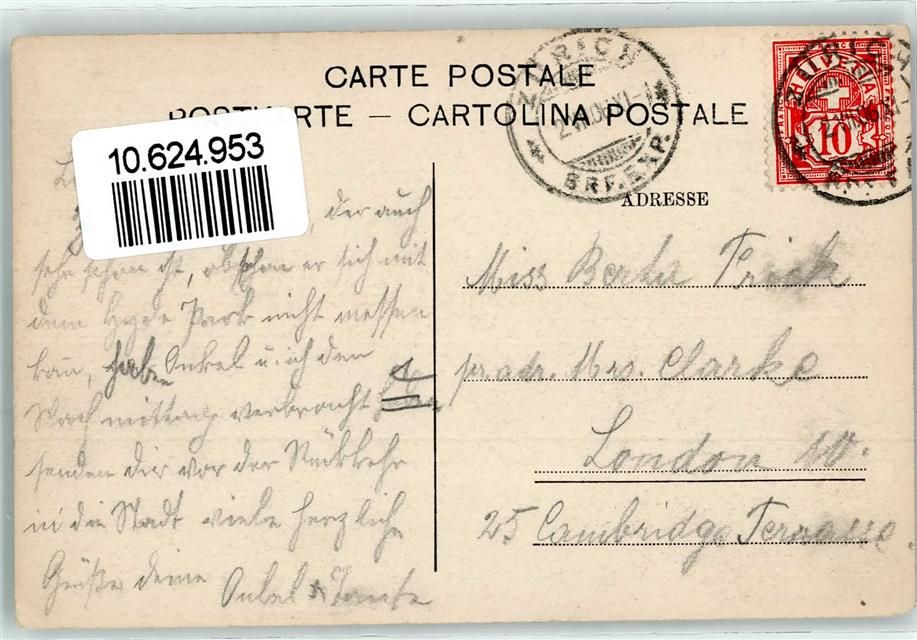 CARTE POSTALE
POSTKARTE — CARTOLINA POSTALE
10.624.953
ZÜRICH
BRF. EXP.
HELVETIA
10
ADRESSE
der auch
sehr schön ist, obschon er sich mit
dem Hyde Park nicht messen
kan, haben Onkel u. ich den
Nachmittag verbracht
senden dir vor der Rückkehr
in die Stadt viele herzliche
Grüße deine
Onkel & Tante
Miss Berta Frick
pr. adr. Mrs. Clarke
London W.
25 Cambridge Terrasse